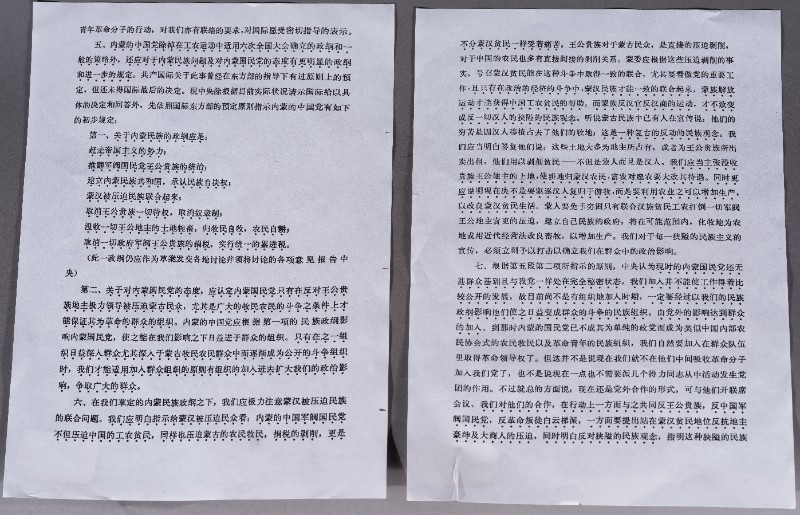 青年革命分子的行动，对我们亦有联络的要求，对国际愿受密切指导的表示。
五、内蒙的中国党除掉在工农运动中适用六次全国大会确立的政纲和一
般的策略外，还应对于内蒙民族问题及对内蒙国民党的态度有更明显的政纲
和进一步的规定。共产国际关于此事曾经在东方部的指导下有过原则上的预
定，但还未得国际最后的决定。现中央除根据目前实际状况请示国际给以具
体的决定和回答外，先依照国际东方部的预定原则指示内蒙的中国党有如下
的初步规定：
第一、关于内蒙民族的政纲应是：
赶走帝国主义的势力；
推翻军阀国民党王公贵族的统治；
建立内蒙民族共和国，承认民族自决权；
蒙汉被压迫民族联合起来；
取消王公贵族一切特权，取消奴隶制；
没收一切王公地主的土地牲畜，归牧民自牧，农民自耕；
取消一切政府军阀王公贵族的捐税，实行统一的累进税。
（此一政纲仍应作为草案发交各地讨论并须将讨论的各项意见报告中
央）
第二、关于对内蒙国民党的态度，应认定内蒙国民党只有在反对王公贵
族地主极力领导被压迫蒙古民众，尤其是广大的牧民农民的斗争之条件上才
能保证其为革命的群众的组织。内蒙的中国党应根据第一项的民族政纲影
响内蒙国民党，使之能在我们影响之下日益进于群众的组织。只有在之一组
织日益深入群众尤其深入于蒙古牧民农民群众中而逐渐成为公开的斗争组织
时，我们才能适用加入群众组织的原则有组织的加入进去扩大我们的政治影
响，争取广大的群众。
六、在我们草定的内蒙民族政纲之下，我们应极力注意蒙汉被压迫民族
的联合问题。我们应明白指示给蒙汉被压迫民众看：内蒙的中国军阀国民党
不但压迫中国的工农贫民，同样也压迫蒙古的农民牧民，捐税的剥削，更是
不分蒙汉贫民一样受着痛苦。王公贵族对于蒙古民众，是直接的压迫剥削，
对于中国的农民也多有直接间接的剥削关系，蒙委应根据这些压迫剥削的事
实，号召蒙汉贫民能在这种斗争中取得一致的联合。尤其要看做党的重要工
作，且只有在政治的经济的斗争中，蒙汉民族才能一致的联合起来，蒙族解放
运动才能获得中国工农贫民的帮助，而蒙族反汉官反汉商的运动，才不致变
成反一切汉人的狭隘的民族观念。听说蒙古民族中已有人在宣传说：他们的
穷苦是因汉人移植占去了他们的牧地；这是一种复古的反动的民族观念，我
们应当明白答复他们说：这些土地大多为地主所占有，或者为王公贵族所出
卖出租，他们用以剥削贫民——不但是蒙人而且是汉人。我们应当主张没收
贵族王公地主的土地，使耕地归蒙汉农民，富农对雇农要大改其待遇。同时更
应说明现在决不是要驱逐汉人复归于游牧，而是要利用农业之可以增加生产，
以改良蒙汉贫民生活。蒙人要免于穷困只有联合汉族贫民工农打倒一切军阀
王公地主富吏的压迫，建立自己民族的政府，将在可能范围内，化牧地为农
地或用近代经营法改良畜牧，以增加生产。我们对于每一狭隘的民族主义的
宣传，必须立刻予以打击以确立我们在群众中的政治影响。
七、根据第五段第二项所指示的原则，中央认为现时的内蒙国民党还无
甚群众基础且与我党一样处在完全秘密状态，我们加入并不能使工作得着比
较公开的发展，故目前尚不是有组织地加入时期，一定要经过以我们的民族
政纲影响他们使之日益变成群众的斗争的民族组织，由党外的影响达到群众
的加入。到那时内蒙的国民党已不成其为单纯的政党而成为类似中国内部农
民协会式的农民牧民以及革命青年的民族组织，我们自然要加入在群众队伍
里取得革命领导权了。但这并不是说现在我们就不在他们中间吸收革命分子
加入我们了党，也不是说现在一点也不需要派几个得力同志从中活动发生党
团的作用。不过就总的方面说，现在还是党外合作的形式，可与他们开联席
会议。我们对他们的合作，在行动上一方面与之共同反王公贵族，反中国军
阀国民党，反革命叛徒白云梯派，一方面要提出站在蒙汉贫民地位反抗地主
豪绅及大商人的压迫，同时明白反对狭隘的民族观念，指明这种狭隘的民族